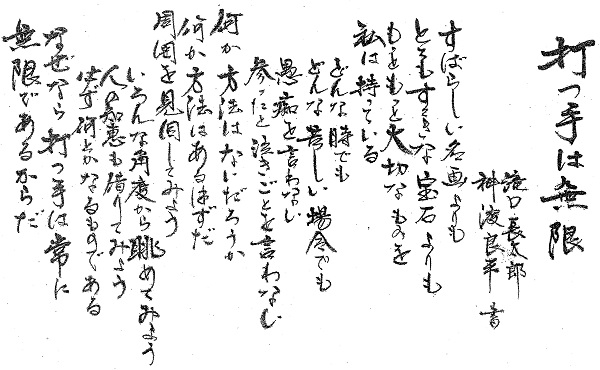 打つ手は無限
滝口長太郎
神渡良平 書
すばらしい名画よりも
とてもすてきな宝石よりも
もっともっと大切なものを
私は持っている
どんな時でも
どんな苦しい場合でも
愚痴を言わない
参ったと泣きごとを言わない
何か方法はないだろうか
何か方法はあるはずだ
周囲を見回してみよう
いろんな角度から眺めてみよう
人の知恵も借りてみよう
必ず何とかなるものである
なぜなら打つ手は常に
無限であるからだ